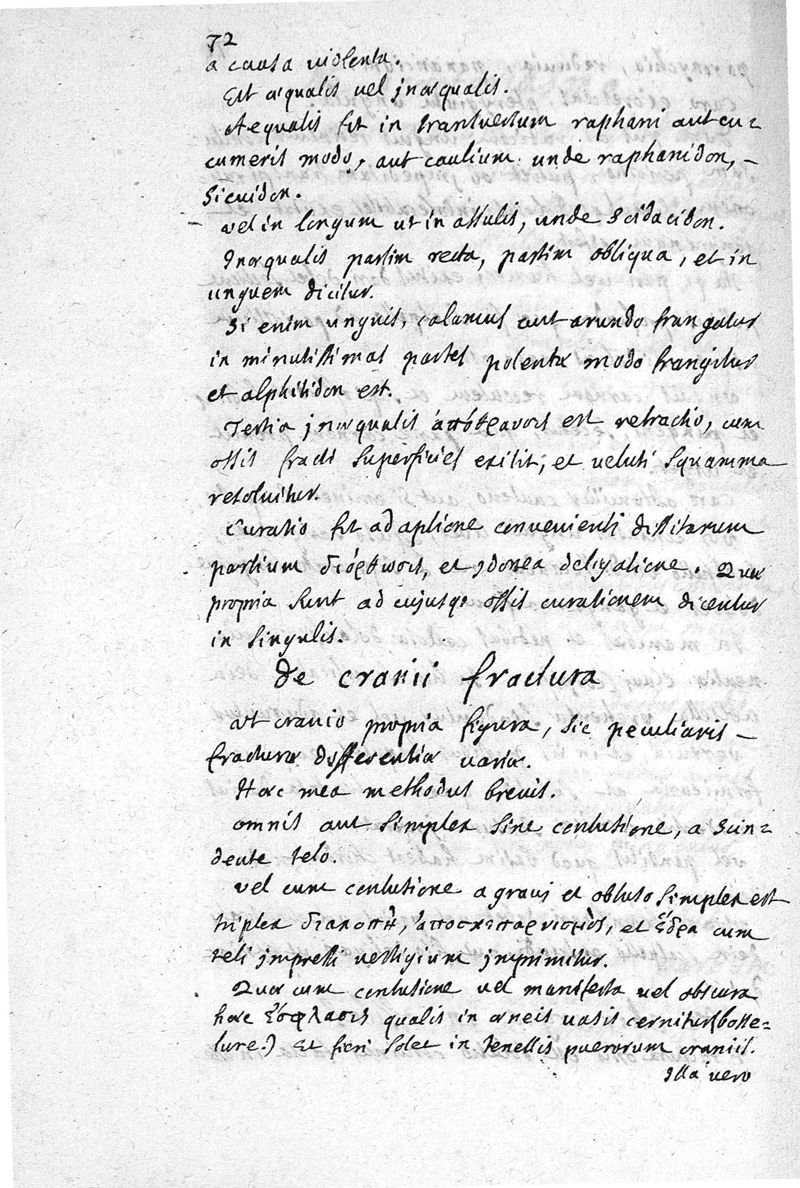 72
a causa violenta.
Est æqualis vel inæqualis.
Aequalis fit in transversum raphani aut cu=
cumeris modo, aut caulium. unde raphanidon, –
sicuidon.
vel in longum ut in assulis, unde scidacidon.
Inæqualis partim recta, partim obliqua, et in
unguem dicitur.
Si enim unguis, calamus aut arundo frangatur
in minutissimas partes polentæ modo frangitur
et alphitidon est.
Tertia inæqualis ἀπόθραυσις est refractio, cum
ossis fracti superficies exilit, et veluti squamma
resolvitur.
Curatio fit adaptione convenienti dissitarum
partium διόρθωσις, et idonea deligatione. Quæ
propria sunt ad cujusqe ossis curationem dicentur
in singulis.
De cranii fractura
Ut cranio propria figura, sic peculiaris –
fracturæ differentia varia.
Hæc mea methodus brevis.
omnis aut simplex sine contusione, a scin=
dente telo.
vel cum contusione a gravi et obtuso simplex est
triplex διακοπὴ, ἀποσκεπαρνισμὸς, et ἕδρα cum
teli impressi vestigium imprimitur.
Quæ cum contusione vel manifesta vel obscura
hæc ἔσφλασις qualis in æneis vasis cernitur (bosse=
lure.) Et fieri solet in tenellis puerorum craniis.
Illa vero